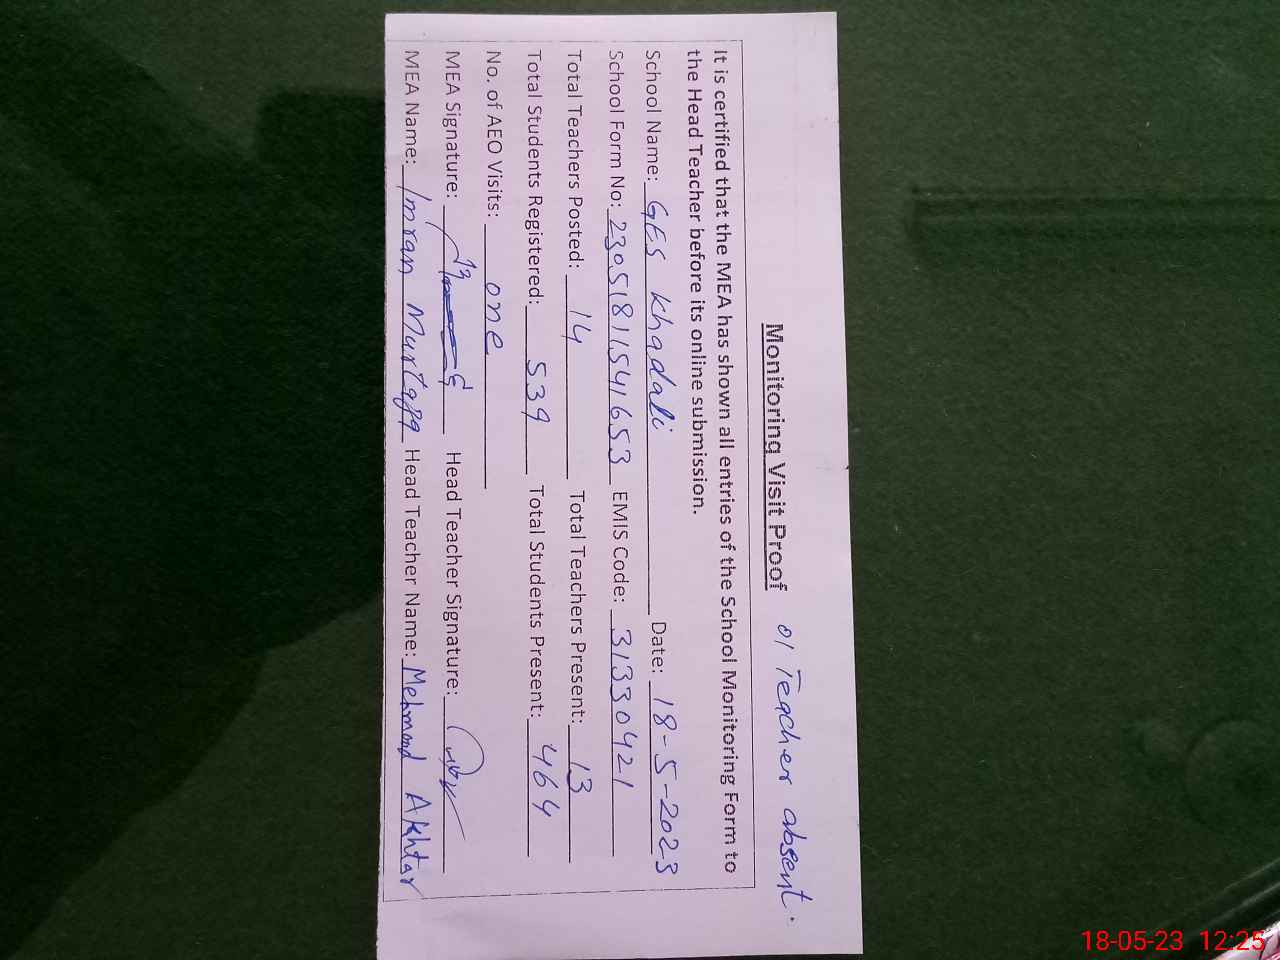 Monitoring Visit Proof 01 Teacher absent.
It is certified that the MEA has shown all entries of the School Monitoring Form to
the Head Teacher before its online submission.
School Name: GES Khadali Date: 18-5-2023
School Form No: 23051811541653 EMIS Code: 31330421
Total Teachers Posted: 14 Total Teachers Present: 13
Total Students Registered: 539 Total Students Present: 464
No. of AEO Visits: one
MEA Signature: Head Teacher Signature:
MEA Name: Imran Murtaza Head Teacher Name: Mehmood Akhtar
18-05-23 12:25